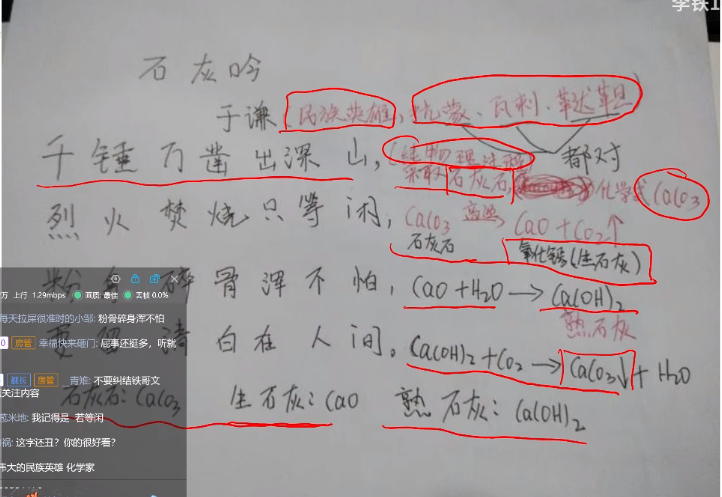 李铁1
石灰吟
于谦(民族英雄,抗蒙、瓦剌、鞑靼
都对
千锤万凿出深山,(经物理过程
采取石灰石,化学式CaCO3
烈火焚烧只等闲,CaCO3 高温 CaO+CO2↑
石灰石 氧化钙(生石灰)
粉身碎骨浑不怕,CaO+H2O→Ca(OH)2
熟石灰
要留清白在人间。Ca(OH)2+CO2→CaCO3↓+H2O
石灰石:CaCO3 生石灰:CaO 熟石灰:Ca(OH)2
万 上行 1.29mbps 画质:最佳 丢帧 0.0%
每天拉屎很准时的小邹: 粉骨碎身浑不怕
0 房管 幸福快来砸门: 屁事还挺多,听就
舰长 房管 青雉: 不要纠结铁哥文
关注内容
葱米地: 我记得是 若等闲
祸: 这字还丑?你的很好看?
伟大的民族英雄 化学家